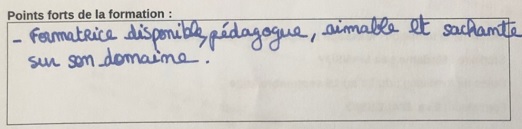 Points forts de la formation :
- Formatrice disponible, pédagogue, aimable et sachantte
sur son domaine.